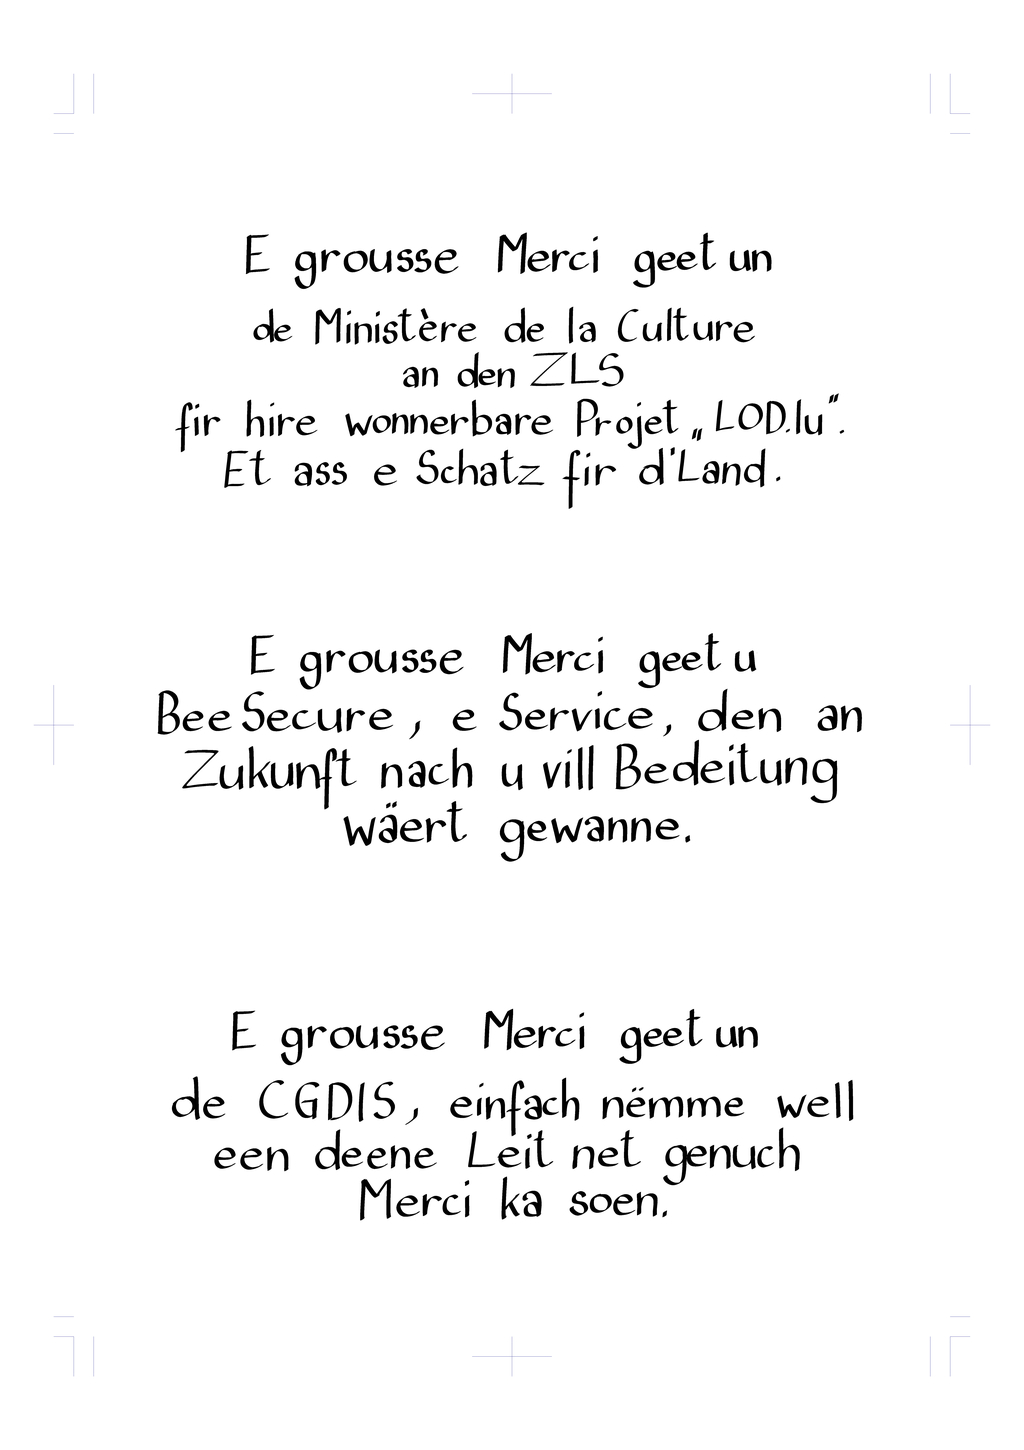 E grousse Merci geet un
de Ministère de la Culture
an den ZLS
fir hire wonnerbare Projet „LOD.lu“.
Et ass e Schatz fir d'Land.
E grousse Merci geet u
BeeSecure, e Service, den an
Zukunft nach u vill Bedeitung
wäert gewanne.
E grousse Merci geet un
de CGDIS, einfach nëmme well
een deene Leit net genuch
Merci ka soen.